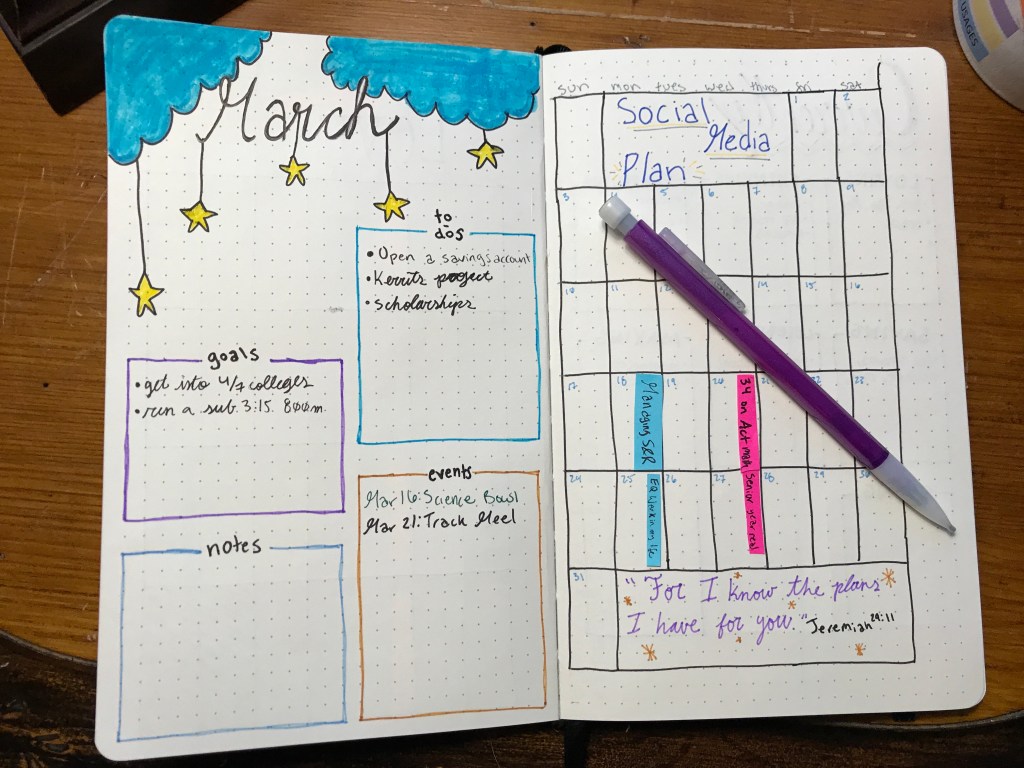 March
to
dos
• Open a savings account
• Kerrits project
• scholarships
goals
• get into 4/7 colleges
• run a sub 3:15 800m.
events
Mar 16: Science Bowl
Mar 21: Track Meet
notes
USAGES
sun mon tues wed thurs fri sat
Social
Media
Plan
1 2
3 4 5 6 7 8 9
10 11 12 14 15 16
17 18 19 20 21 22 23
Managing S&R
34 on Act math
24 25 26 27 28 29 30
EQ Working life
Senior year real
31
"For I know the plans
I have for you." Jeremiah 29:11